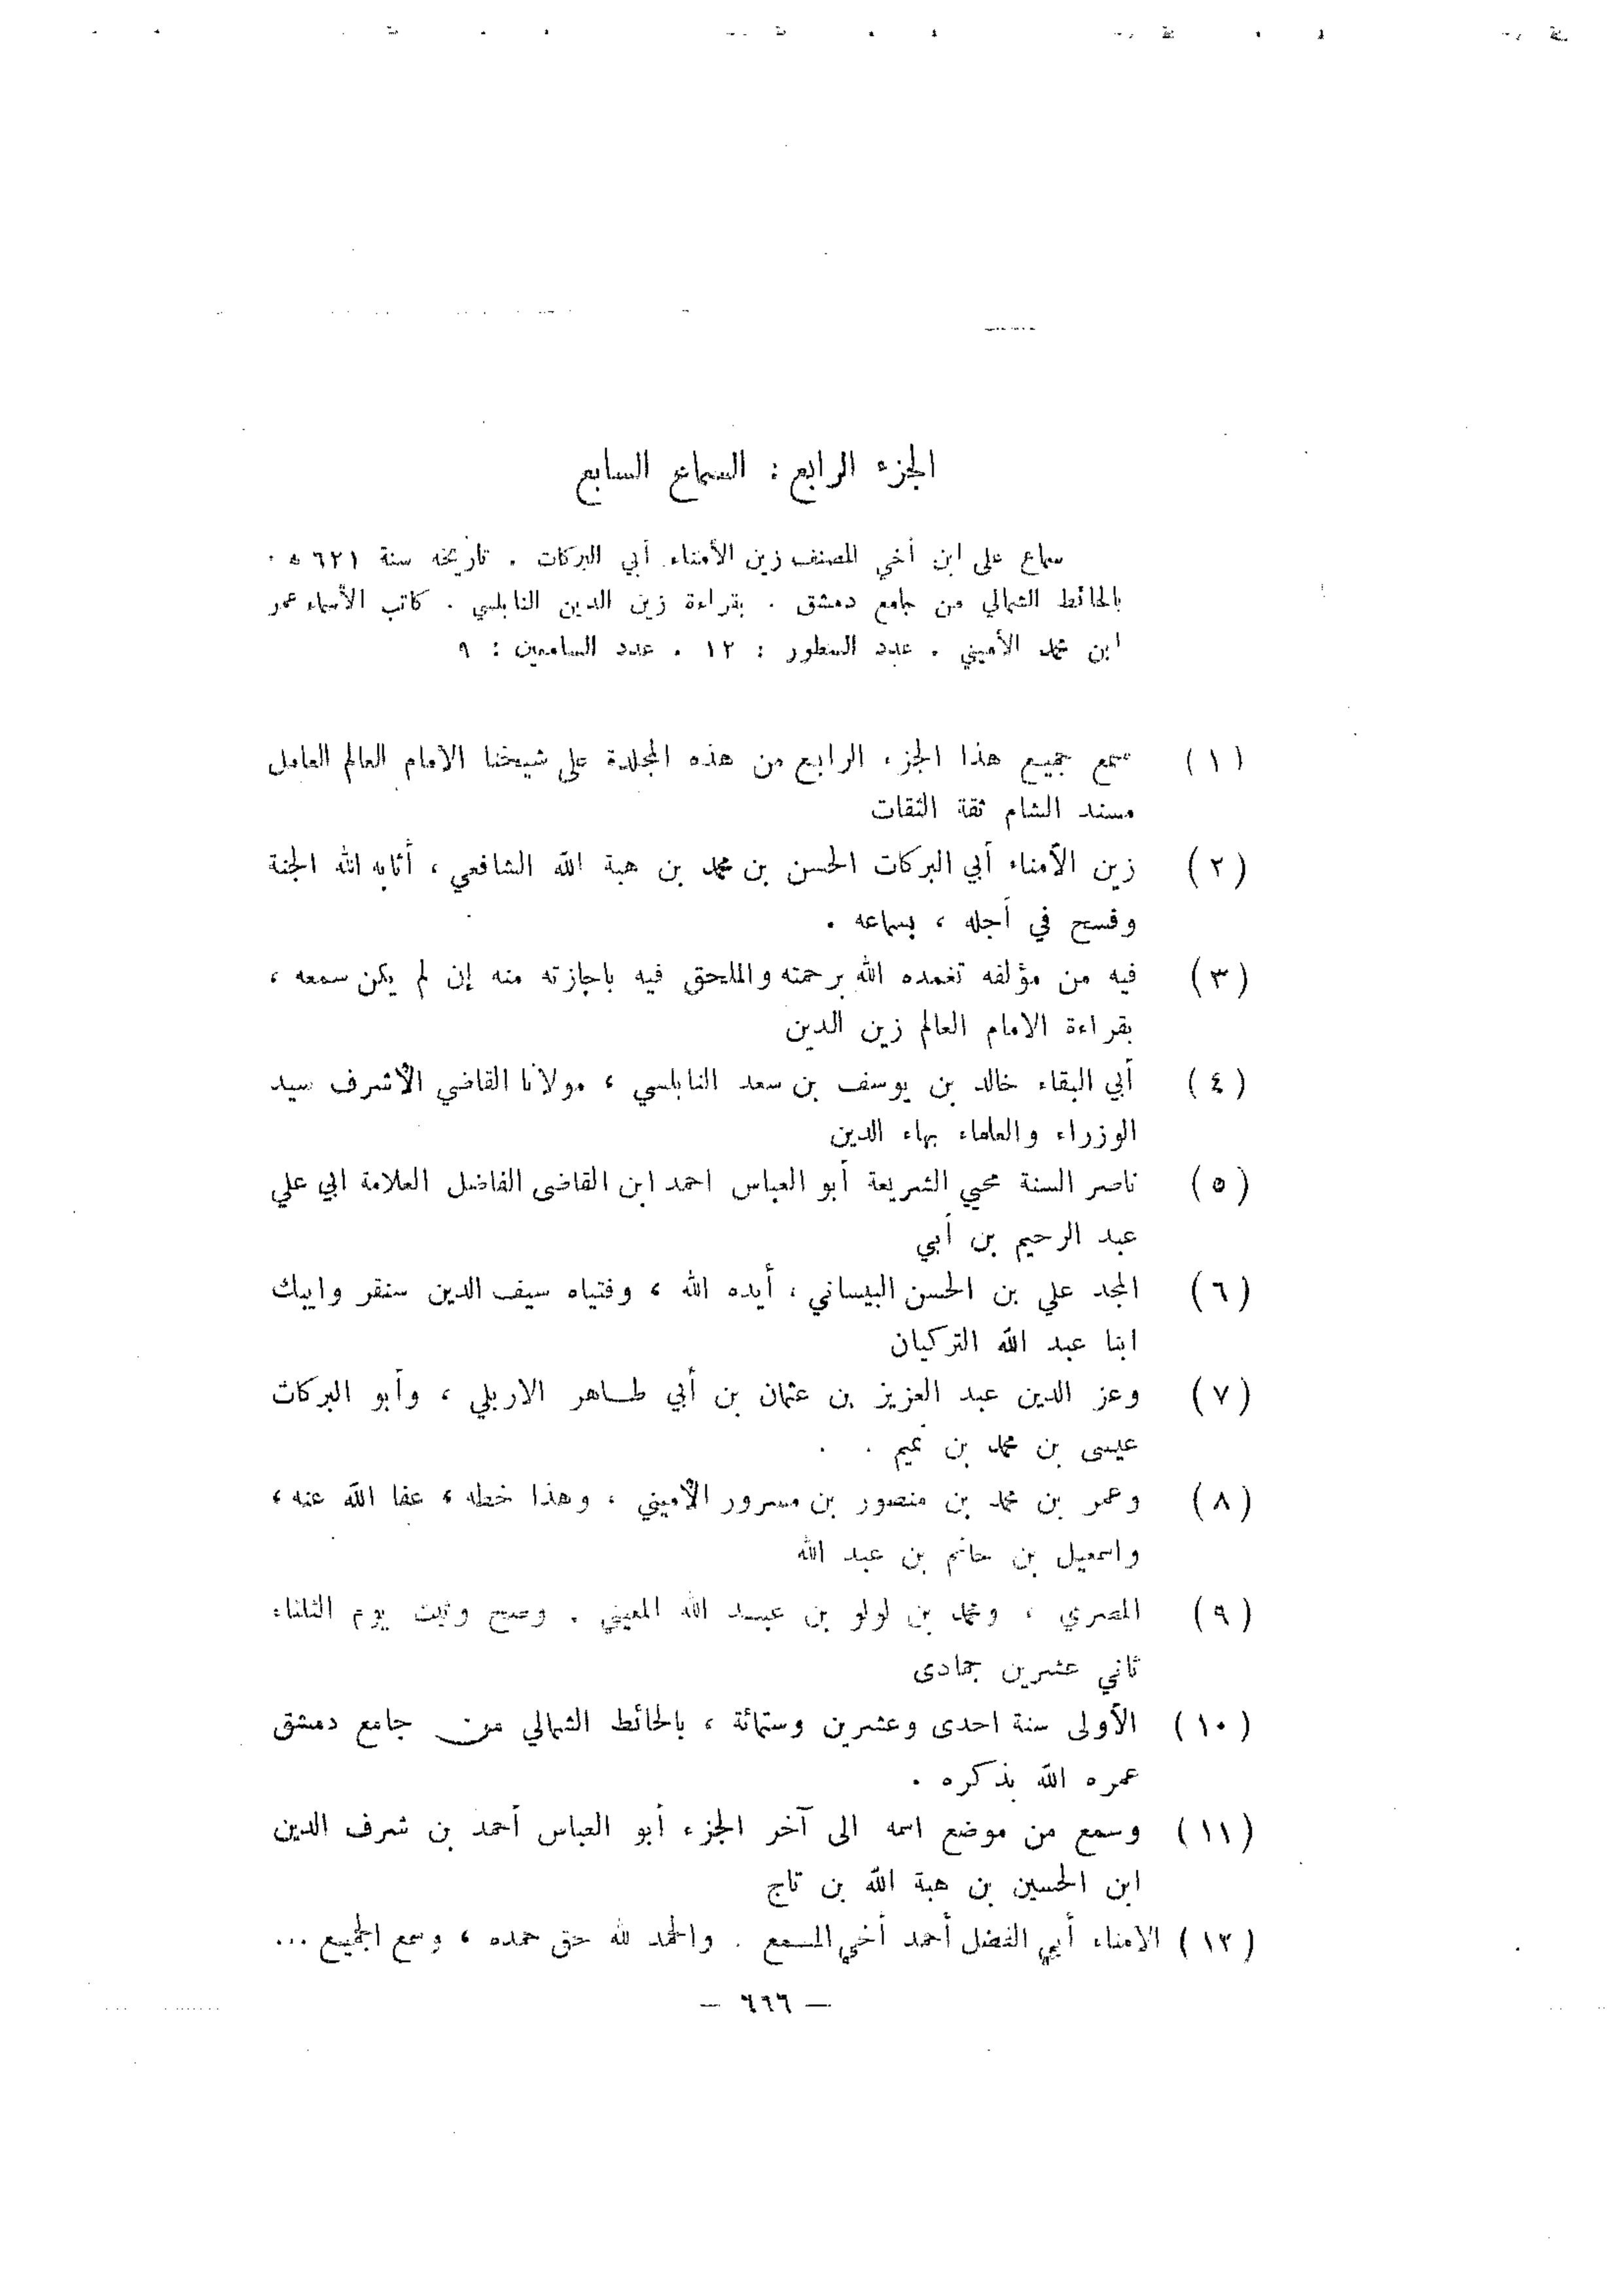 الجزء الرابع : السماع السابع
سماع على ابن أخي المصنف زين الأمناء أبي البركات . تاريخه سنة ٦٢١ ه .
بالحائط الشمالي من جامع دمشق . بقراءة زين الدين النابلسي . كاتب الأسماء عمر
ابن محمد الأميني . عدد السطور : ١٢ . عدد السامعين : ٩
(١) سمع جميع هذا الجزء الرابع من هذه المجلدة على شيخنا الامام العالم العامل
مسند الشام ثقة الثقات
(٢) زين الأمناء أبي البركات الحسن بن محمد بن هبة الله الشافعي ، أثابه الله الجنة
وفسح في أجله ، بسماعه .
(٣) فيه من مؤلفه تغمده الله برحمته والملحق فيه باجازته منه إن لم يكن سمعه ،
بقراءة الامام العالم زين الدين
(٤) أبي البقاء خالد بن يوسف بن سعد النابلسي ، مولانا القاضي الأشرف سيد
الوزراء والعلماء بهاء الدين
(٥) ناصر السنة محيي الشريعة أبو العباس احمد ابن القاضى الفاضل العلامة ابي علي
عبد الرحيم بن أبي
(٦) المجد علي بن الحسن البيساني ، أيده الله ، وفتياه سيف الدين سنقر وايبك
ابنا عبد الله التركيان
(٧) وعز الدين عبد العزيز بن عثمان بن أبي طاهر الاربلي ، وأبو البركات
عيسى بن محمد بن تميم .
(٨) وعمر بن محمد بن منصور بن مسرور الأميني ، وهذا خطه ، عفا الله عنه ،
واسمعيل بن حاتم بن عبد الله
(٩) المصري ، ومحمد بن لولو بن عبد الله المعيني . وصح وثبت يوم الثلثاء
ثاني عشرين جمادى
(١٠) الأولى سنة احدى وعشرين وستمائة ، بالحائط الشمالي من جامع دمشق
عمره الله بذكره .
(١١) وسمع من موضع اسمه الى آخر الجزء أبو العباس أحمد بن شرف الدين
ابن الحسين بن هبة الله بن تاج
(١٢) الامناء أبي الفضل أحمد أخي المسمع . والحمد لله حق حمده ، وسمع الجميع ...
— ٦٦٦ —